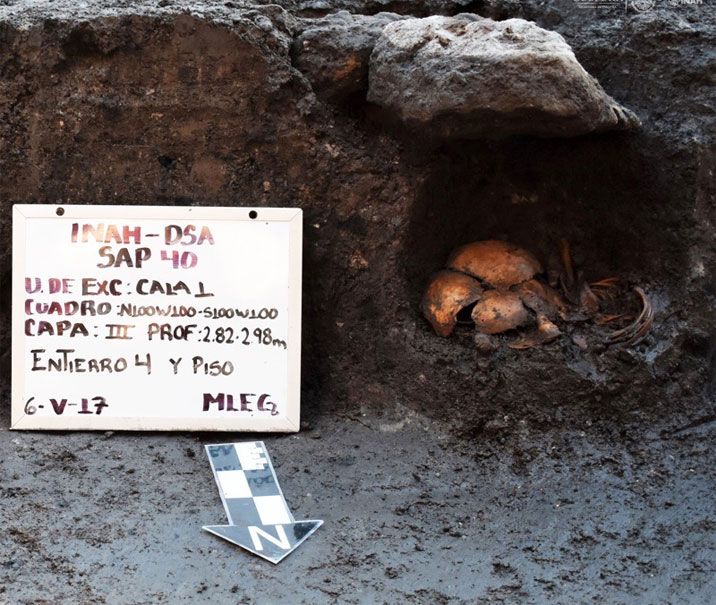 INAH-DSA
SAP 40
U. DE EXC: CALA 1
CUADRO: N100W100-S100W100
CAPA: III PROF: 2.82-2.98m
ENTIERRO 4 Y PISO
6-V-17 MLEG
N
INAH